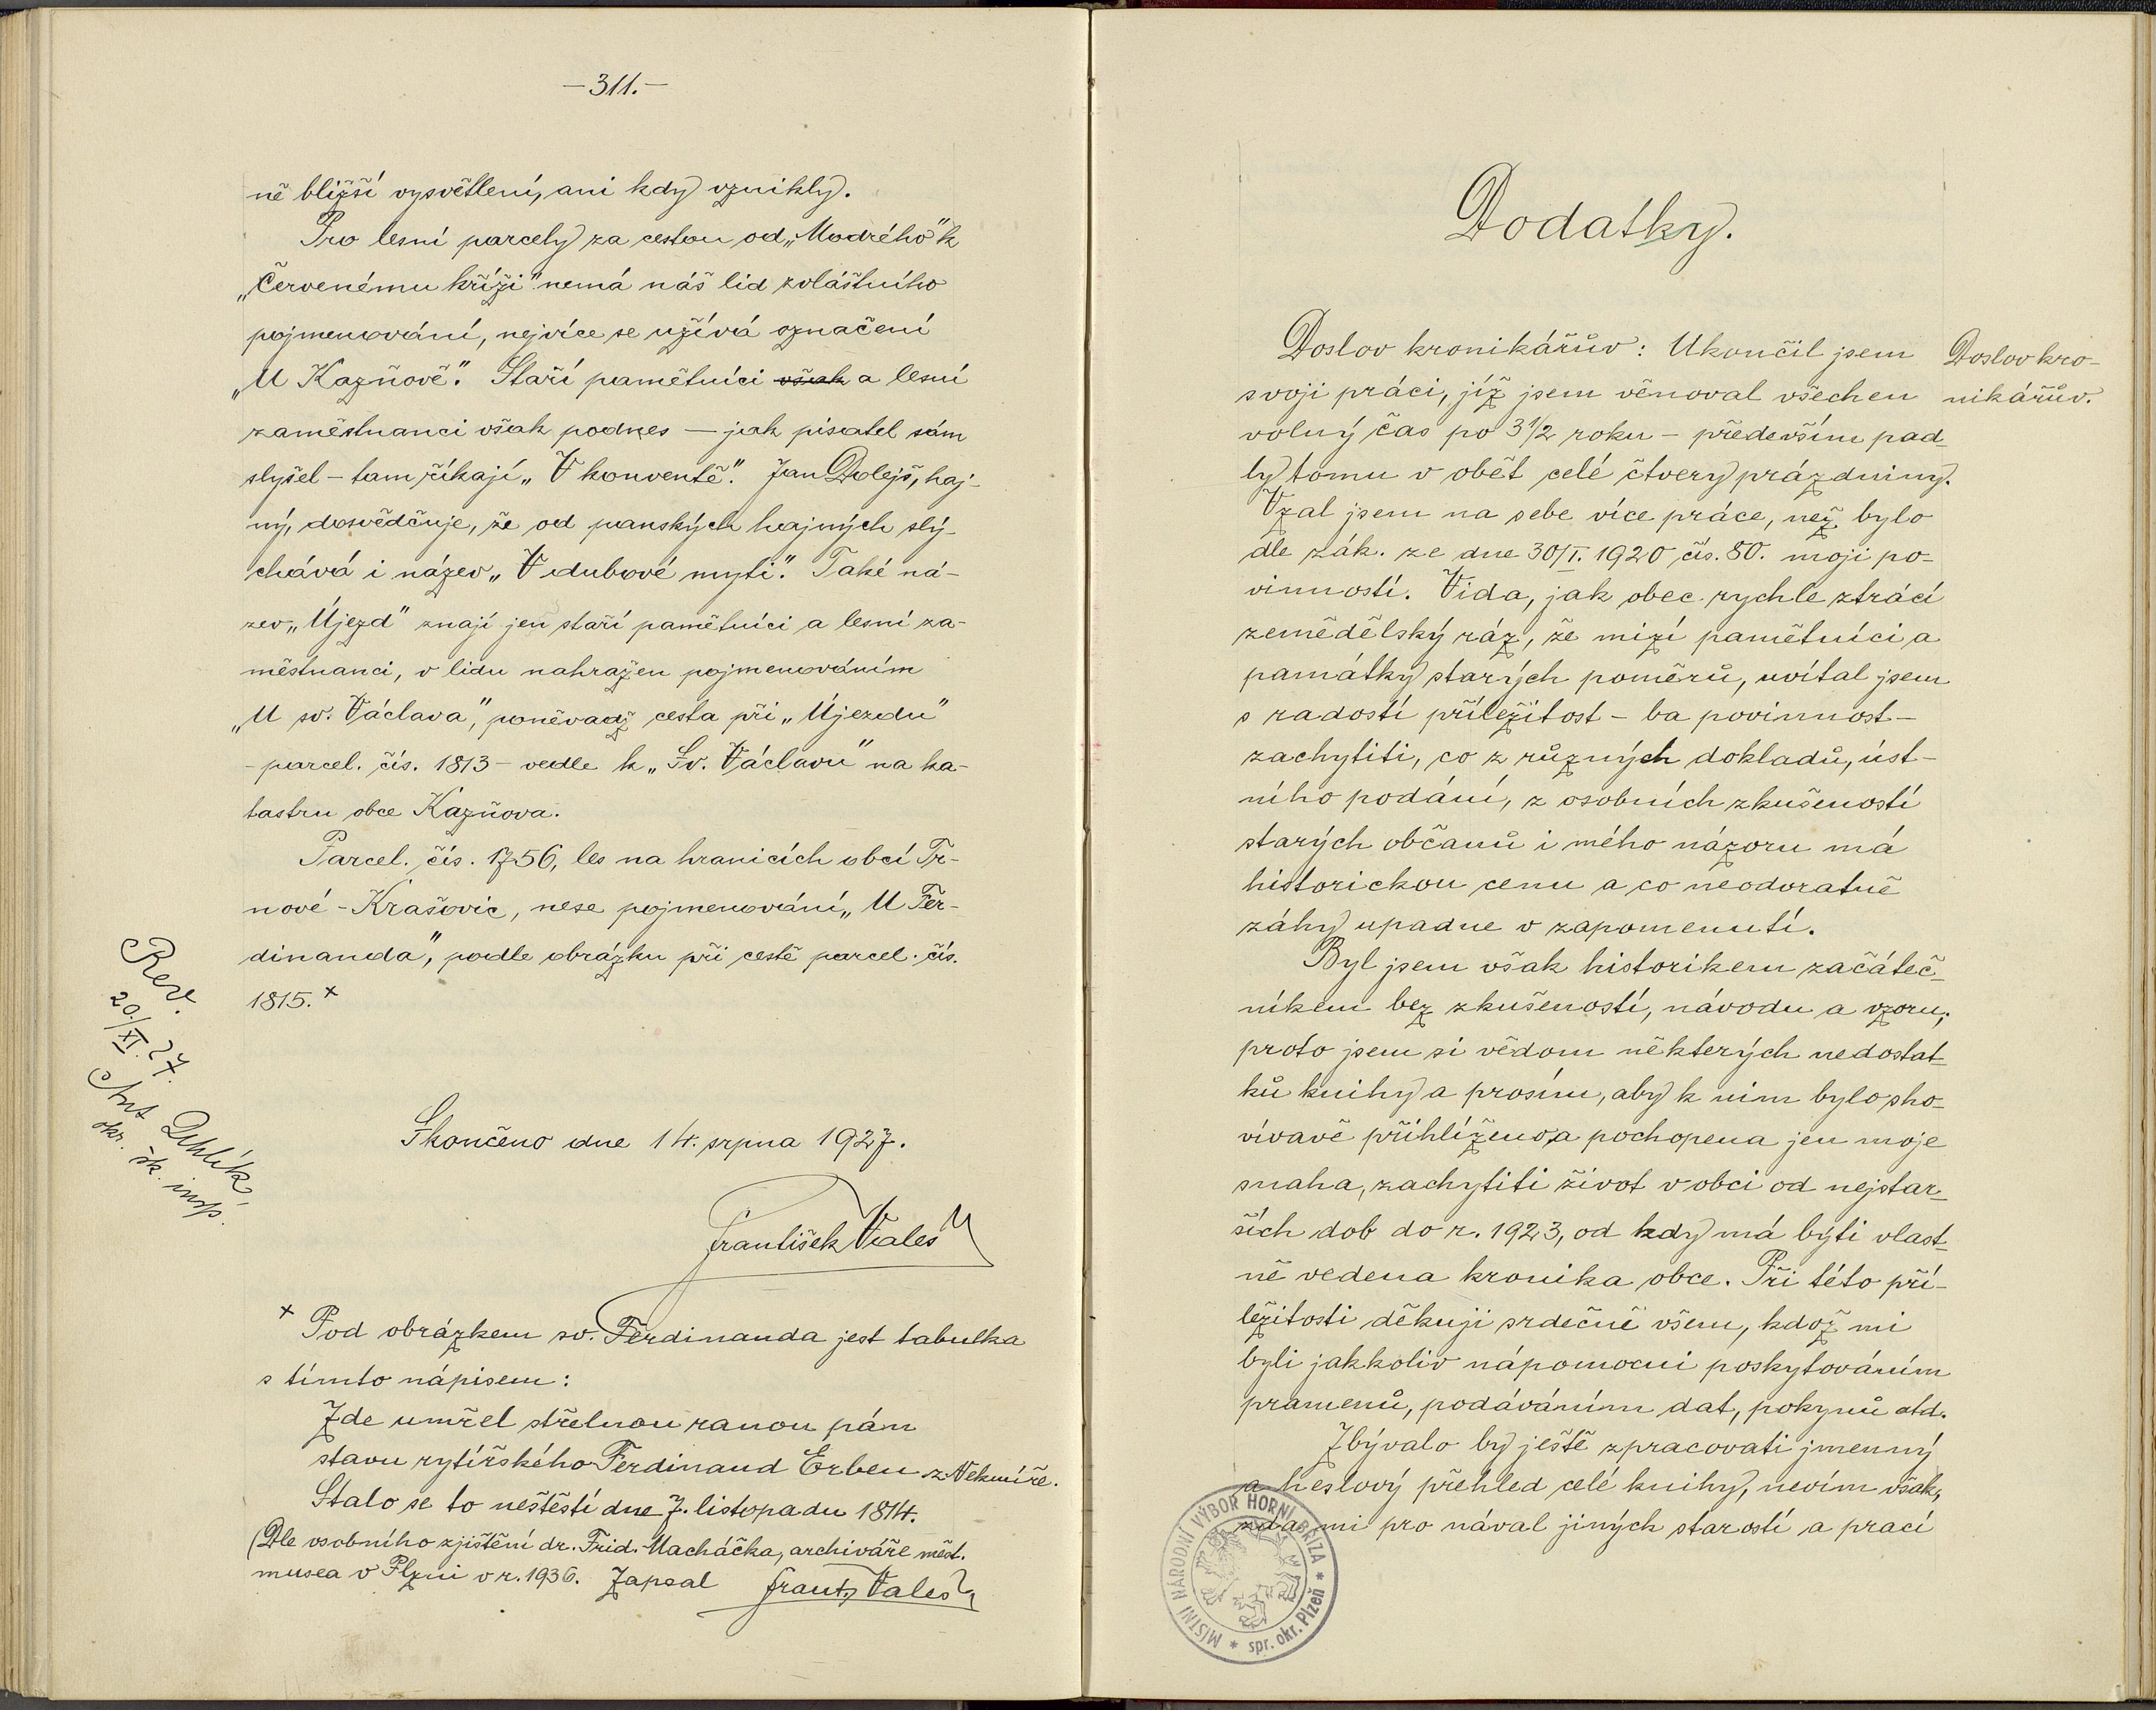 -311.-
ně bližší vysvětlení, ani kdy vznikly.
Pro lesní parcely za cestou od „Modrého" k
„Červenému kříži" nemá náš lid zvláštního
pojmenování, nejvíce se užívá označení
„U Kazňově". Staří pamětníci však a lesní
zaměstnanci však podnes — jak pisatel sám
slyšel - tam říkají „V konventě". Jan Dolejš, haj-
ný, dosvědčuje, že od panských hajných slý-
chává i název „V dubové myti". Také ná-
zev „Újezd" znají jen staří pamětníci a lesní za-
městnanci, v lidu nahražen pojmenováním
„U sv. Václava", poněvadž cesta při „Újezdu"
- parcel. čís. 1813 - vedle k „Sv. Václavu" na ka-
tastru obce Kazňova.
Parcel. čís. 1756, les na hranicích obcí Tr-
nové - Krašovic, nese pojmenování „U Fer-
dinanda", podle obrázku při cestě parcel. čís.
1815. x
Rev.
20./XI. 27.
Ant
okr. šk. insp.
Skončeno dne 14. srpna 1927.
František Valeš
x Pod obrázkem sv. Ferdinanda jest tabulka
s tímto nápisem:
Zde umřel střelnou ranou pán
stavu rytířského Ferdinand Erben z Nekmíře.
Stalo se to neštěstí dne 7. listopadu 1814.
(Dle osobního zjištění dr. Frid. Macháčka, archiváře měst.
musea v Plzni v r. 1936. Zapsal Frant. Valeš
Dodatky.
Doslov kronikářův: Ukončil jsem
Doslov kro-
nikářův.
svoji práci, jíž jsem věnoval všechen
volný čas po 3 1/2 roku - především pad-
ly tomu v oběť celé čtvery prázdniny.
Vzal jsem na sebe více práce, než bylo
dle zák. ze dne 30/I. 1920 čís. 80. moji po-
vinností. Vida, jak obec rychle ztrácí
zemědělský ráz, že mizí pamětníci a
památky starých poměrů, uvítal jsem
s radostí příležitost - ba povinnost -
zachytiti, co z různých dokladů, úst-
ního podání, z osobních zkušeností
starých občanů i mého názoru má
historickou cenu a co neodvratně
záhy upadne v zapomenutí.
Byl jsem však historikem začáteč-
níkem bez zkušeností, návodu a vzoru;
proto jsem si vědom některých nedostat-
ků knihy a prosím, aby k nim bylo sho-
vívavě přihlíženo, a pochopena jen moje
snaha, zachytiti život v obci od nejstar-
ších dob do r. 1923, od kdy má býti vlast-
ně vedena kronika obce. Při této pří-
ležitosti děkuji srdečně všem, kdož mi
byli jakkoliv nápomocni poskytováním
pramenů, podáváním dat, pokynů atd.
Zbývalo by ještě zpracovati jmenný
a heslový přehled celé knihy, nevím však,
zda mi pro nával jiných starostí a prací
MÍSTNÍ NÁRODNÍ VÝBOR HORNÍ BŘÍZA * spr. okr. Plzeň *